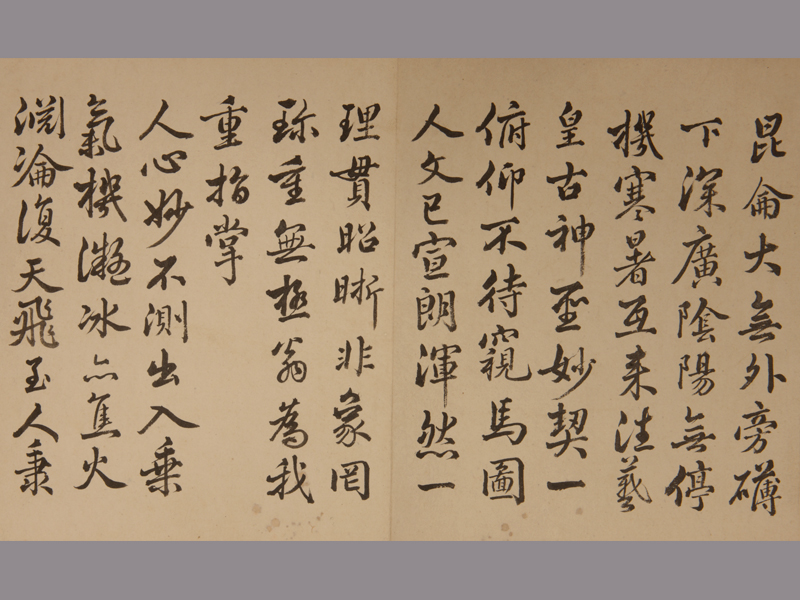 昆侖大無外旁礴
下深廣陰陽無停
機寒暑互来往羲
皇古神聖妙契一
俯仰不待窺馬圖
人文已宣朗渾然一
理貫昭晰非象罔
珎重無極翁為我
重指掌
人心妙不測出入乗
氣機凝冰亦焦火
淵淪復天飛至人秉